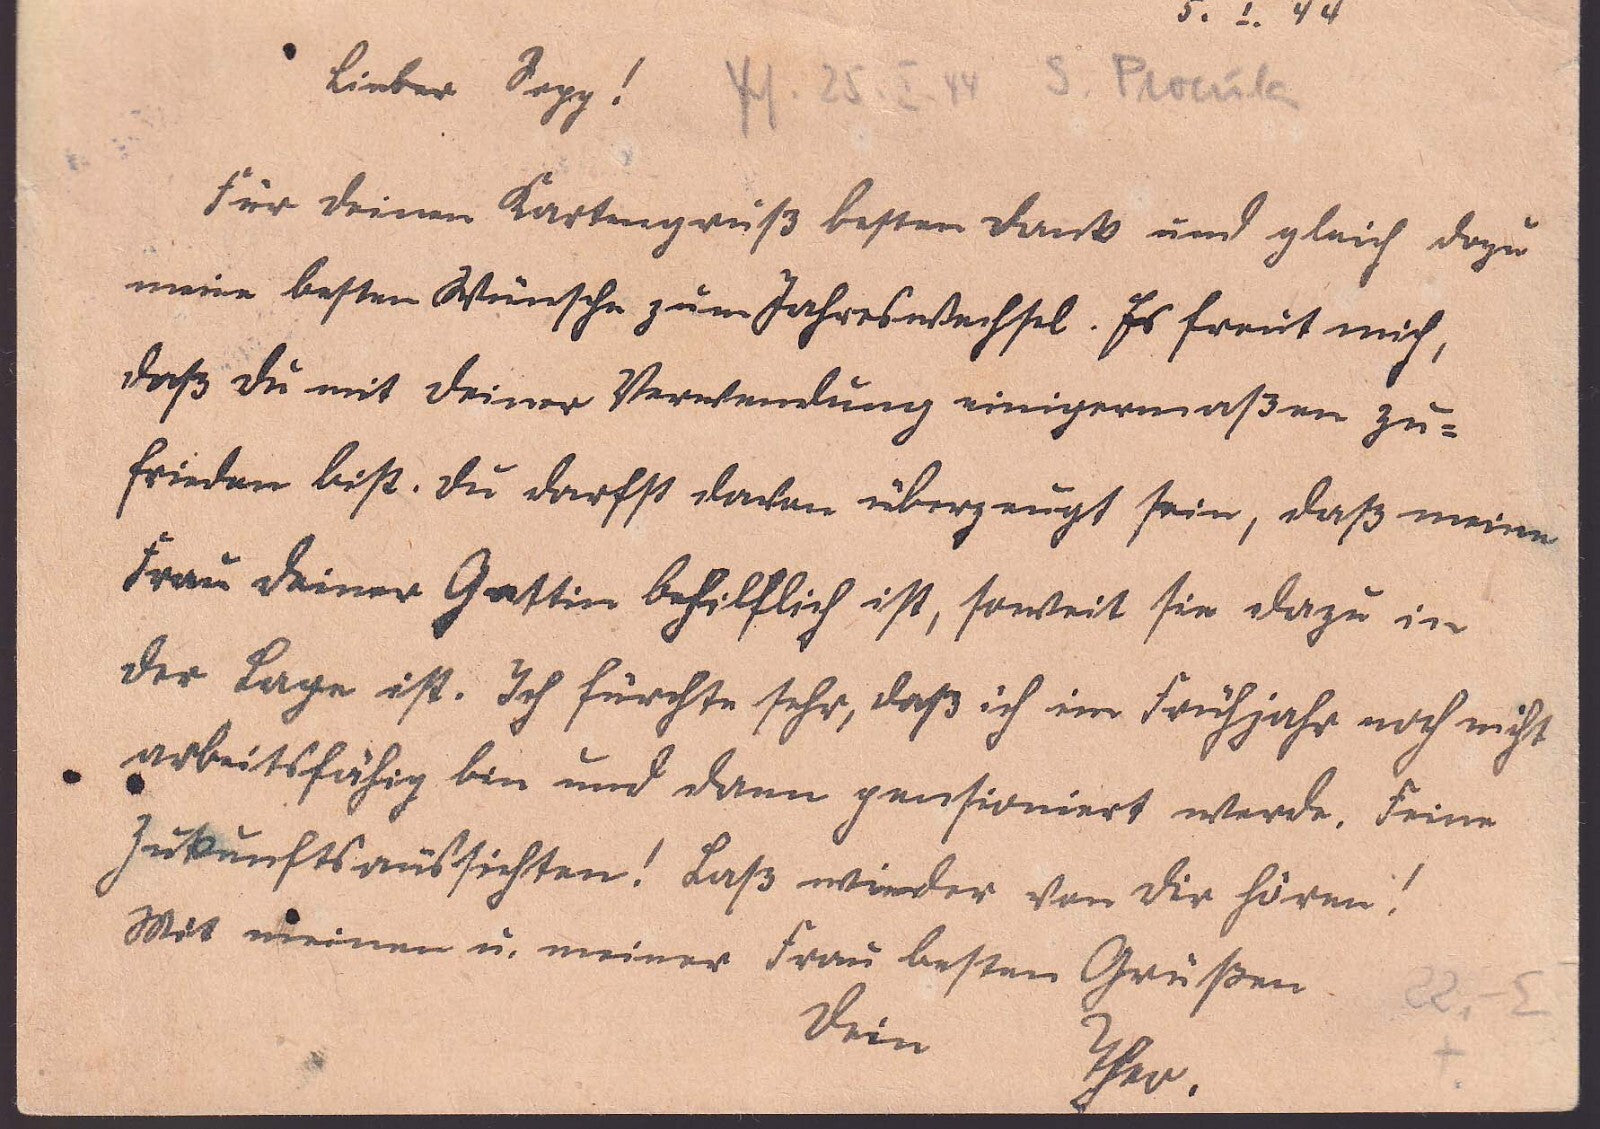 5. I. 44
Lieber Sepp!
25. I. 44 S. Procuk
Für deinen Kartengruß besten Dank und gleich dazu
meine besten Wünsche zum Jahreswechsel. Es freut mich,
daß du mit deiner Verwendung einigermaßen zu=
frieden bist. Du darfst davon überzeugt sein, daß meine
Frau deiner Gattin behilflich ist, soweit sie dazu in
der Lage ist. Ich fürchte sehr, daß ich im Frühjahr noch nicht
arbeitsfähig bin und dann pensioniert werde. Feine
Zukunftsaussichten! Laß wieder von dir hören!
Mit meinen u. meiner Frau besten Grüßen
Dein Theo.
22,-